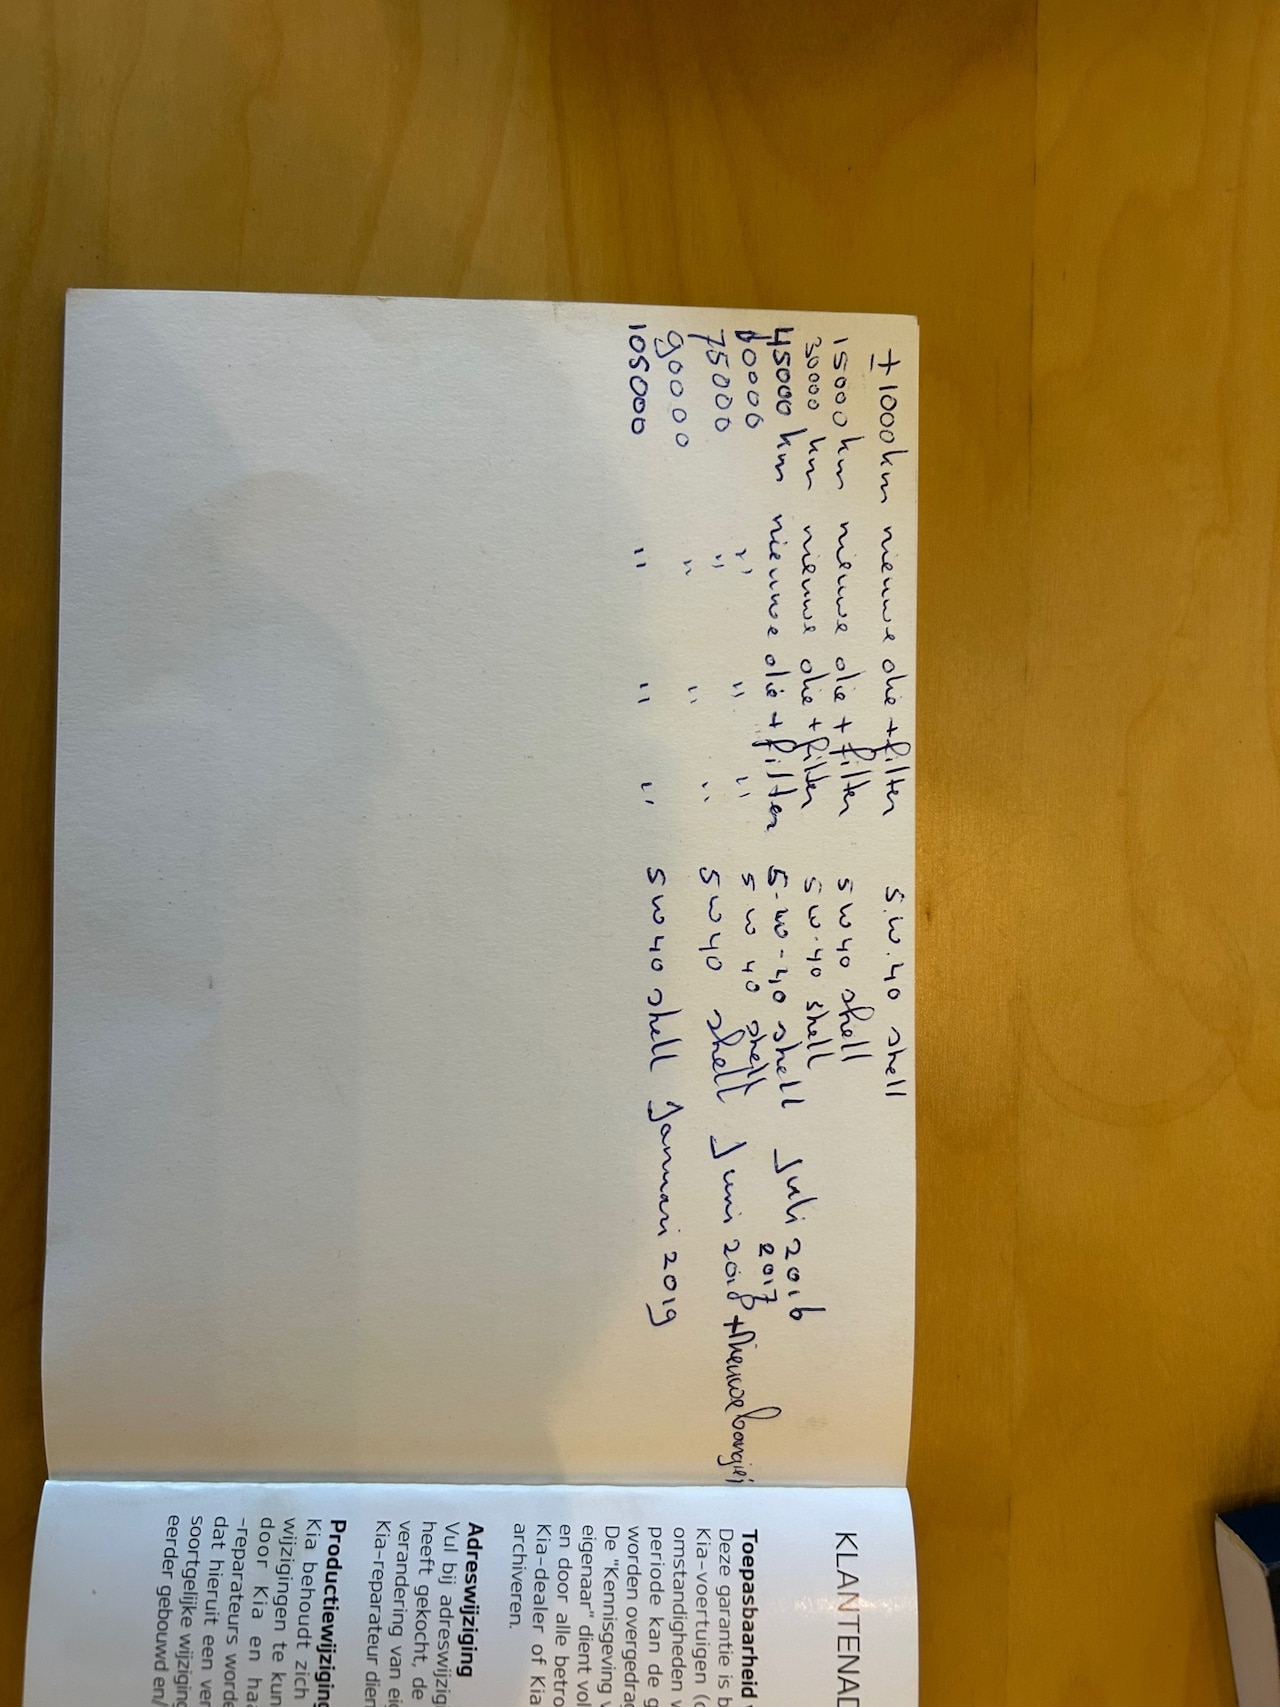 ± 1000km nieuwe olie + filter 5.w.40 shell
15000km nieuwe olie + filter 5w40 shell
30000 km nieuwe olie + filter 5w.40 shell
45000 km nieuwe olie + filter 5-w-40 shell Juli 2016
60000 " " " 5w 40 shell 2017
75000 " 5w40 shell Juni 2018 + Nieuwe bougie's
90000 " " "
105000 " " " 5w40 shell Januari 2019
KLANTENAD
Toepasbaarheid
Deze garantie is b
Kia-voertuigen (
omstandigheden v
periode kan de g
worden overgedra
De "Kennisgeving v
eigenaar" dient vol
en door alle betro
Kia-dealer of Kia
archiveren.
Adreswijziging
Vul bij adreswijzig
heeft gekocht, de
verandering van ei
Kia-reparateur dien
Productiewijziging
Kia behoudt zich
wijzigingen te kun
door Kia en ha
-reparateurs worde
dat hieruit een ver
soortgelijke wijziging
eerder gebouwd en/